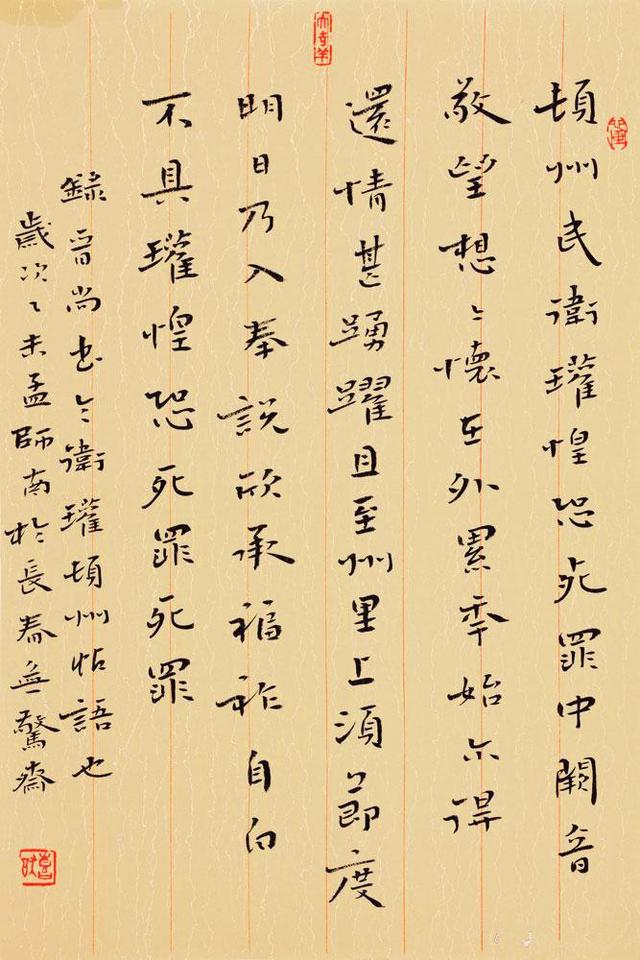 頓州民衛瓘惶恐死罪中闕音
敬望想〻懷在外累年始尒得
還情甚踴躍且至州里上須節度
明日乃入奉說欣承福祚自白
不具瓘惶恐死罪死罪
錄晉尚书令衛瓘頓州帖語也
歲次乙未孟師南於長春無驚齋